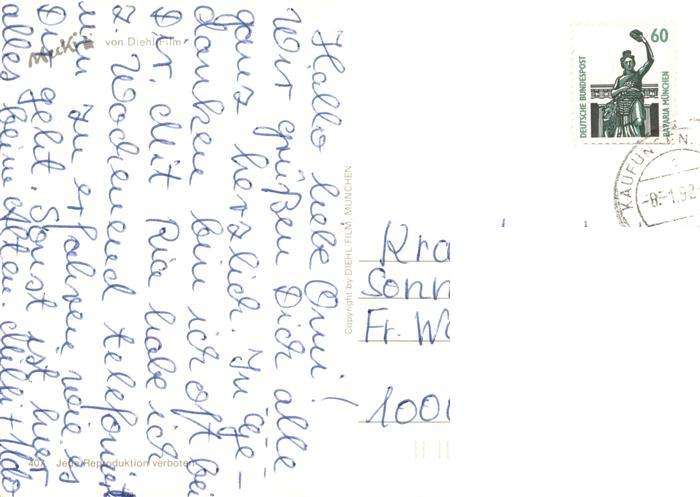 Hallo liebe Omi!
Wir grüßen Dich alle
ganz herzlich. In Ge-
danken bin ich oft bei
Dir. Mit Ria habe ich
z. Wochenend telefoniert
um zu erfahren, wie es
Dir geht. Sonst ist hier
alles beim Alten.
Mecki von Diehl Film
407 Jede Reproduktion verboten
Copyright by DIEHL FILM, MÜNCHEN
60
DEUTSCHE BUNDESPOST
BAVARIA MÜNCHEN
KAUFUN
N.
-8.-1.92
Kra
Sonn
Fr. W
100